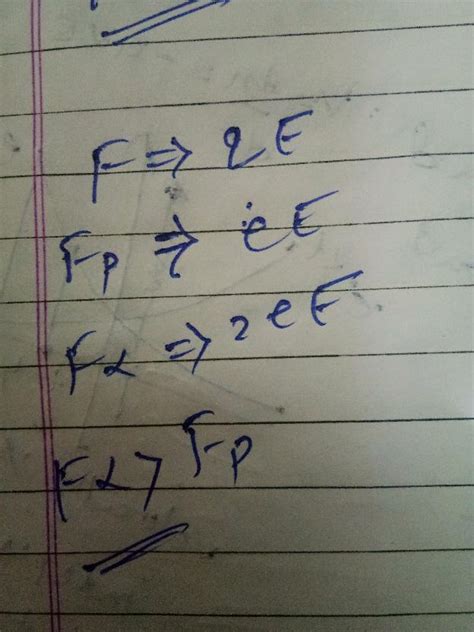 F ⇒ qE
Fp ⇒ eE
Fα ⇒ 2eE
Fα > Fp